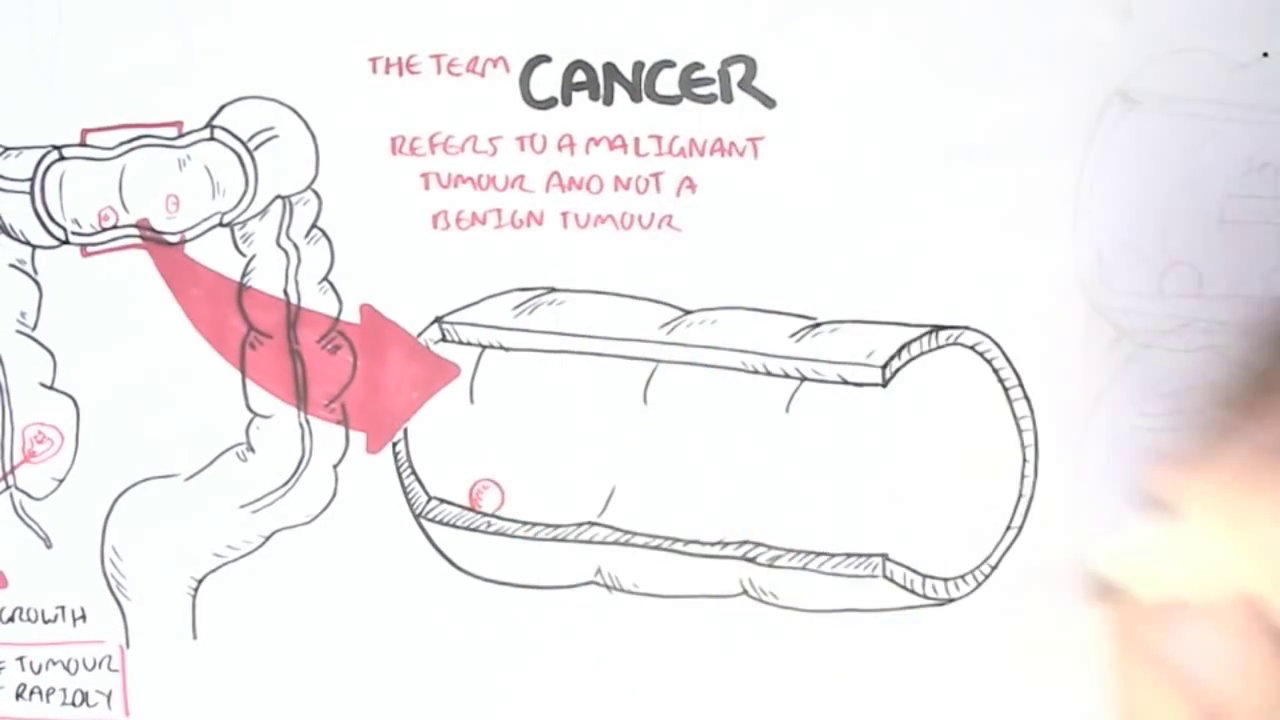 THE TERM CANCER
REFERS TO A MALIGNANT
TUMOUR AND NOT A
BENIGN TUMOUR
GROWTH
TUMOUR
RAPIDLY